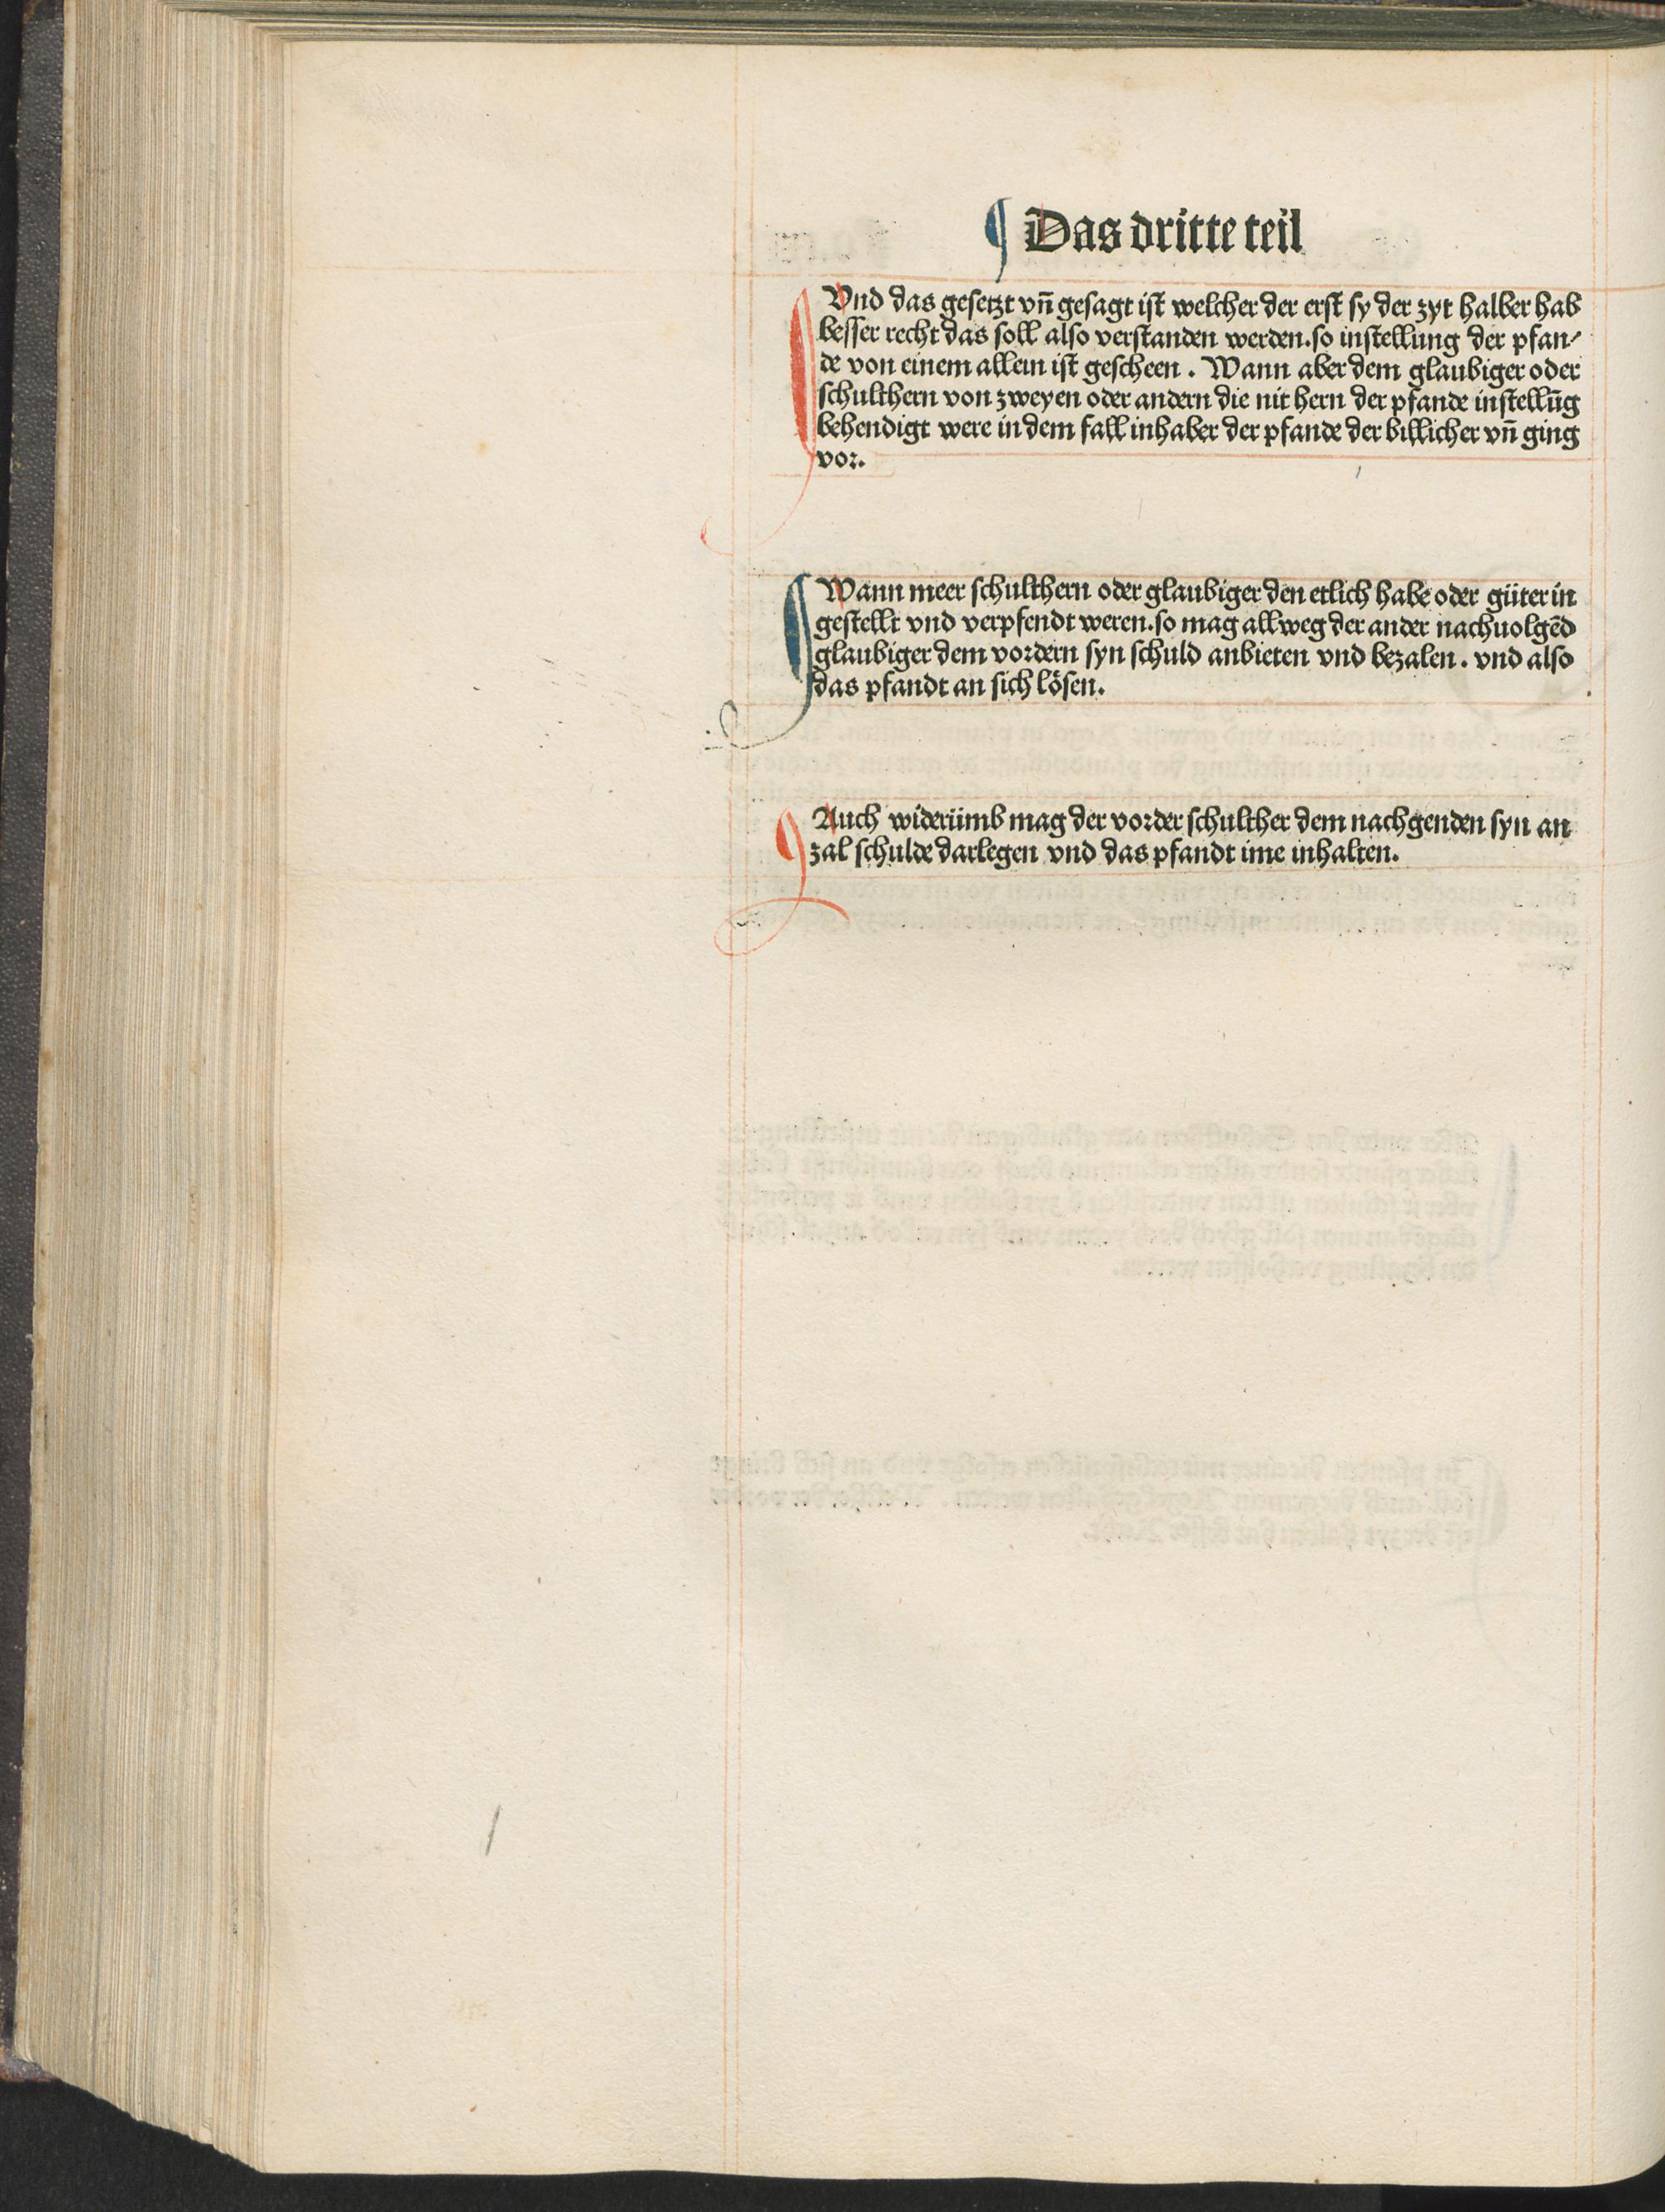 Das dritte teil
Vnd das gesetzt vn̄ gesagt ist welcher der erst sy der zyt halber hab
besser recht das soll also verstanden werden. so instellung der pfan⸗
de von einem allein ist gescheen. Wann aber dem glaubiger oder
schulthern von zweyen oder andern die nit hern der pfande instellūg
behendigt were in dem fall inhaber der pfande der billicher vn̄ ging
vor.
Wann meer schulthern oder glaubiger den etlich habe oder güter in
gestellt vnd verpfendt weren. so mag allweg der ander nachuolgēd
glaubiger dem vordern syn schuld anbieten vnd bezalen. vnd also
das pfandt an sich lösen.
Auch widerümb mag der vorder schulther dem nachgenden syn an
zal schulde darlegen vnd das pfandt ime inhalten.